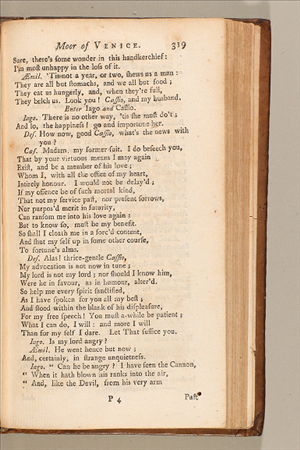 Moor of VENICE. 319
Sure, there's some wonder in this handkerchief:
I'm most unhappy in the loss of it.
Æmil. 'Tis not a year, or two, shews us a man:
They are all but stomachs, and we all but food;
They eat us hungerly, and, when they're full,
They belch us. Look you! Cassio, and my husband.
Enter Iago and Cassio.
Iago. There is no other way, 'tis she must do't;
And lo, the happiness! go and importune her.
Des. How now, good Cassio, what's the news with
you?
Cas. Madam, my former suit. I do beseech you,
That by your virtuous means I may again
Exist, and be a member of his love;
Whom I, with all the office of my heart,
Intirely honour. I would not be delay'd;
If my offence be of such mortal kind,
That not my service past, nor present sorrows,
Nor purpos'd merit in futurity,
Can ransom me into his love again;
But to know so, must be my benefit.
So shall I cloath me in a forc'd content,
And shut my self up in some other course,
To fortune's alms.
Des. Alas! thrice-gentle Cassio,
My advocation is not now in tune;
My lord is not my lord; nor should I know him,
Were he in favour, as in humour, alter'd.
So help me every spirit sanctified,
As I have spoken for you all my best;
And stood within the blank of his displeasure,
For my free speech! You must a-while be patient;
What I can do, I will: and more I will
Than for my self I dare. Let That suffice you.
Iago. Is my lord angry?
Æmil. He went hence but now;
And, certainly, in strange unquietness.
Iago. " Can he be angry? I have seen the Cannon,
" When it hath blown his ranks into the air,
" And, like the Devil, from his very arm
P 4
Puft